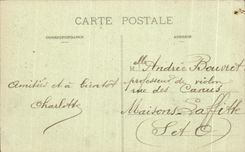 CARTE POSTALE
CORRESPONDANCE
ADRESSE
Mr André Bouvret
professeur de violon
rue des Canus
Maisons-Laffitte
(S et O)
Amitiés et à bientôt
Charlotte